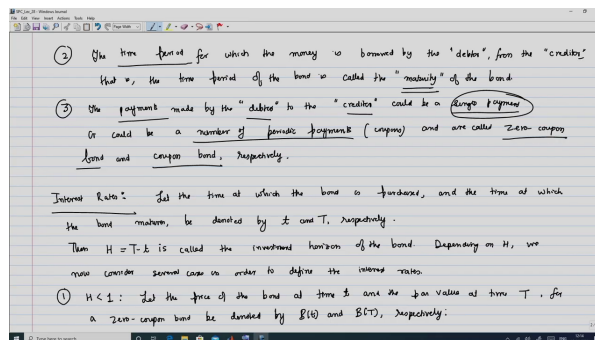 SFC_Lec_28 - Windows Journal
File Edit View Insert Actions Tools Help
Page Width
② The time period for which the money is borrowed by the "debtor", from the "creditor"
that is, the time period of the bond is called the "maturity" of the bond
③ The payments made by the "debtor" to the "creditor" could be a single payment
or could be a number of periodic payments (coupons) and are called zero-coupon
bond and coupon bond, respectively.
Interest Rates: Let the time at which the bond is purchased, and the time at which
the bond matures, be denoted by t and T, respectively.
Then H = T-t is called the investment horizon of the bond. Depending on H, we
now consider several cases in order to define the interest rates.
① H < 1: Let the price of the bond at time t and the par value at time T, for
a zero-coupon bond be denoted by B(t) and B(T), respectively:
Type here to search
ENG 12:14